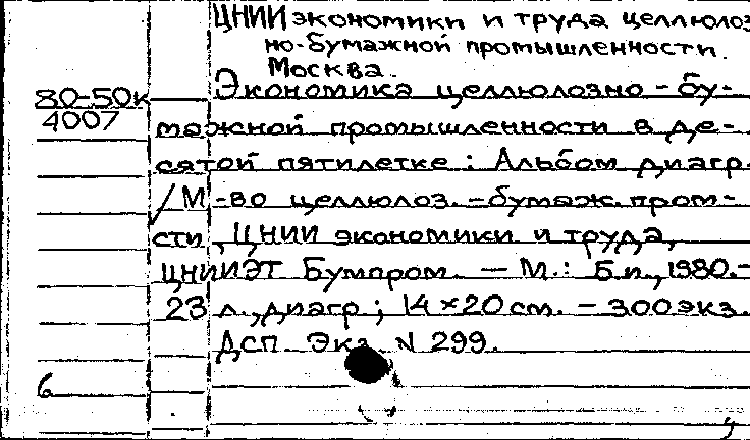 ЦНИИ экономики и труда целлюлоз
но-бумажной промышленности.
Москва.
80-50к Экономика целлюлозно-бу-
4007 мажной промышленности в де-
сятой пятилетке: Альбом диагр.
/М-во целлюлоз.-бумаж. пром-
сти, ЦНИИ экономики и труда,
ЦНИИЭТ Бумпром. — М.: Б.и., 1980.-
23 л., диагр; 14×20 см. - 300 экз.
ДСП Экз. N 299.
6